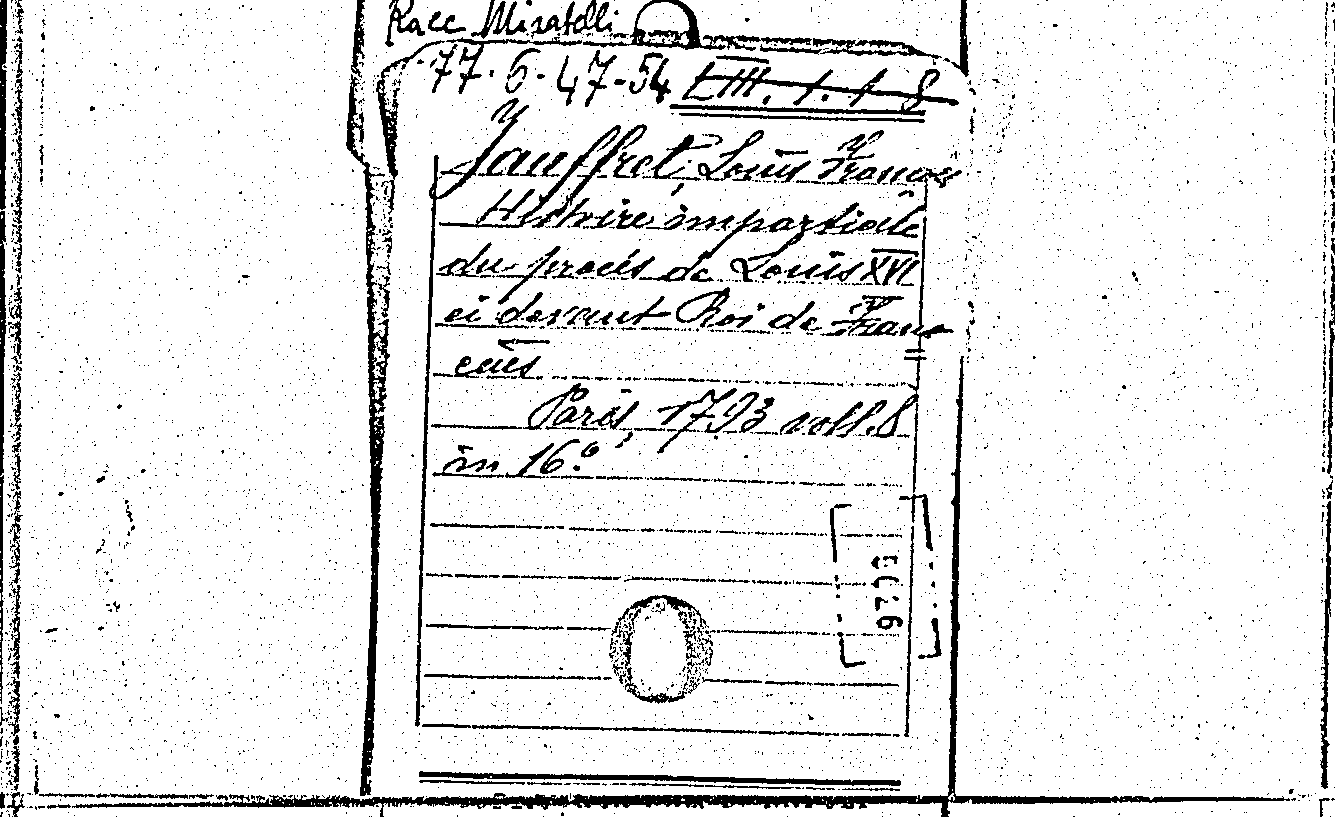 Racc Miratelli
77.6.47-54 LIII. 1. 1-8
Jauffret, Louis François
Histoire impartiale
du procès de Louis XVI
ci devant Roi de Fran=
çais
Paris, 1793 voll. 8
in 16.º